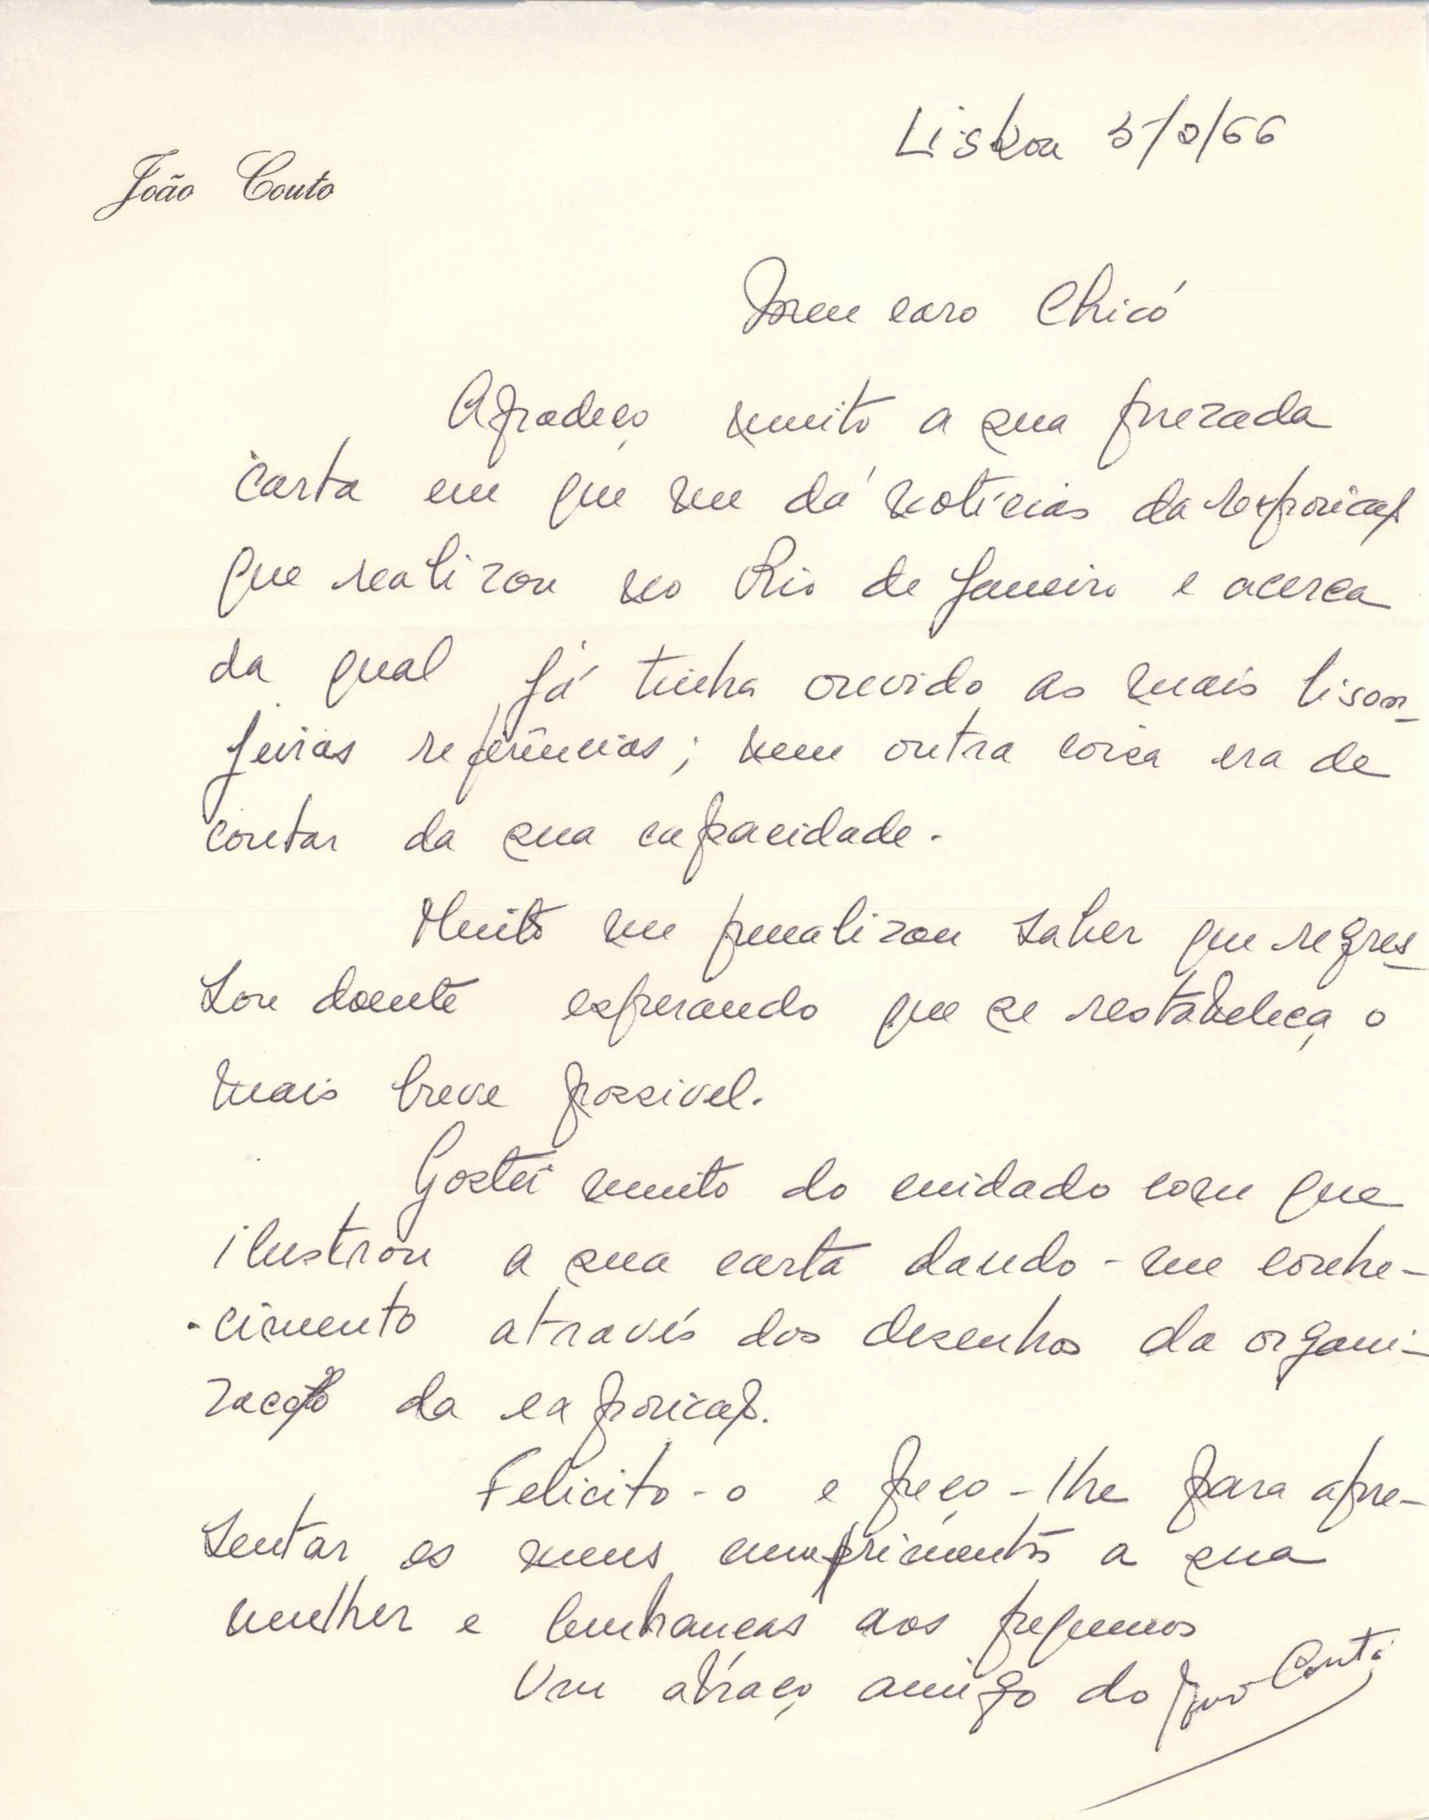 Lisboa 5/2/66
João Couto
Meu caro Chicó
Agradeço muito a sua prezada
carta em que me dá notícias da exposição
que realizou no Rio de Janeiro e acerca
da qual já tinha ouvido as mais lison-
jeiras referências; nem outra coisa era de
contar da sua capacidade.
Muito me penalizou saber que regres-
sou doente esperando que se restabeleça o
mais breve possivel.
Gostei muito do cuidado com que
ilustrou a sua carta dando-me conhe-
-cimento através dos desenhos da organi-
zação da exposição.
Felicito-o e peço-lhe para apre-
sentar os meus cumprimentos a sua
mulher e lembranças aos pequenos
Um abraço amigo do João Couto